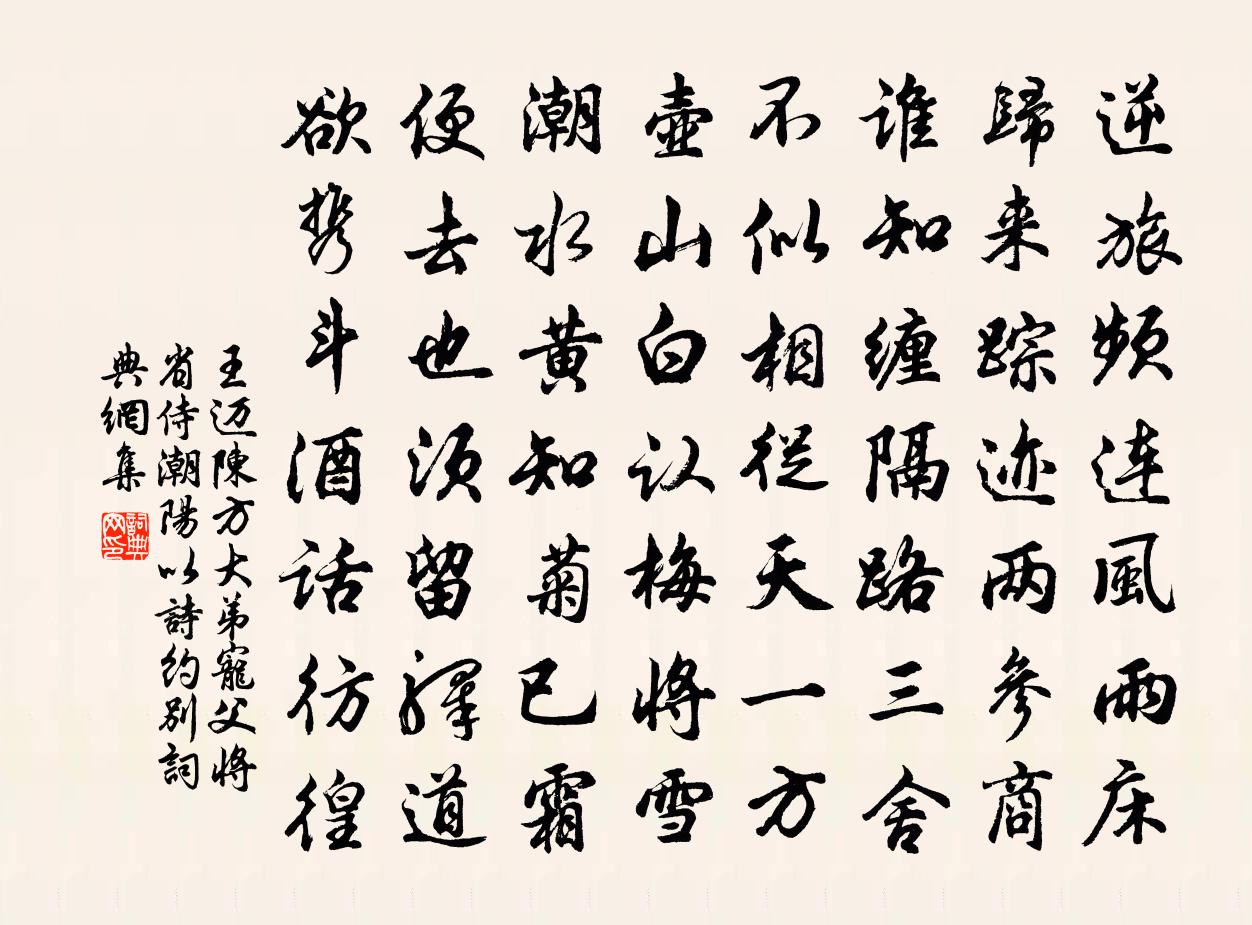 逆旅频连風雨床
歸来踪迹两参商
谁知缠隔路三舍
不似相從天一方
壶山白认梅将雪
潮水黄知菊已霜
便去也须留驛道
欲携斗酒话彷徨
王迈陳方大弟寵父将
省侍潮陽以詩約别詞
典網集
詞典
网印